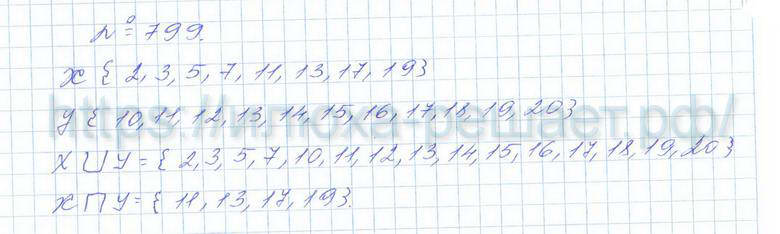 № 799.
X { 2, 3, 5, 7, 11, 13, 17, 19}
У { 10, 11, 12, 13, 14, 15, 16, 17, 18, 19, 20}
X ⋃ У = { 2, 3, 5, 7, 10, 11, 12, 13, 14, 15, 16, 17, 18, 19, 20}
X ⋂ У = { 11, 13, 17, 19}.
https://илюха-решает.рф/